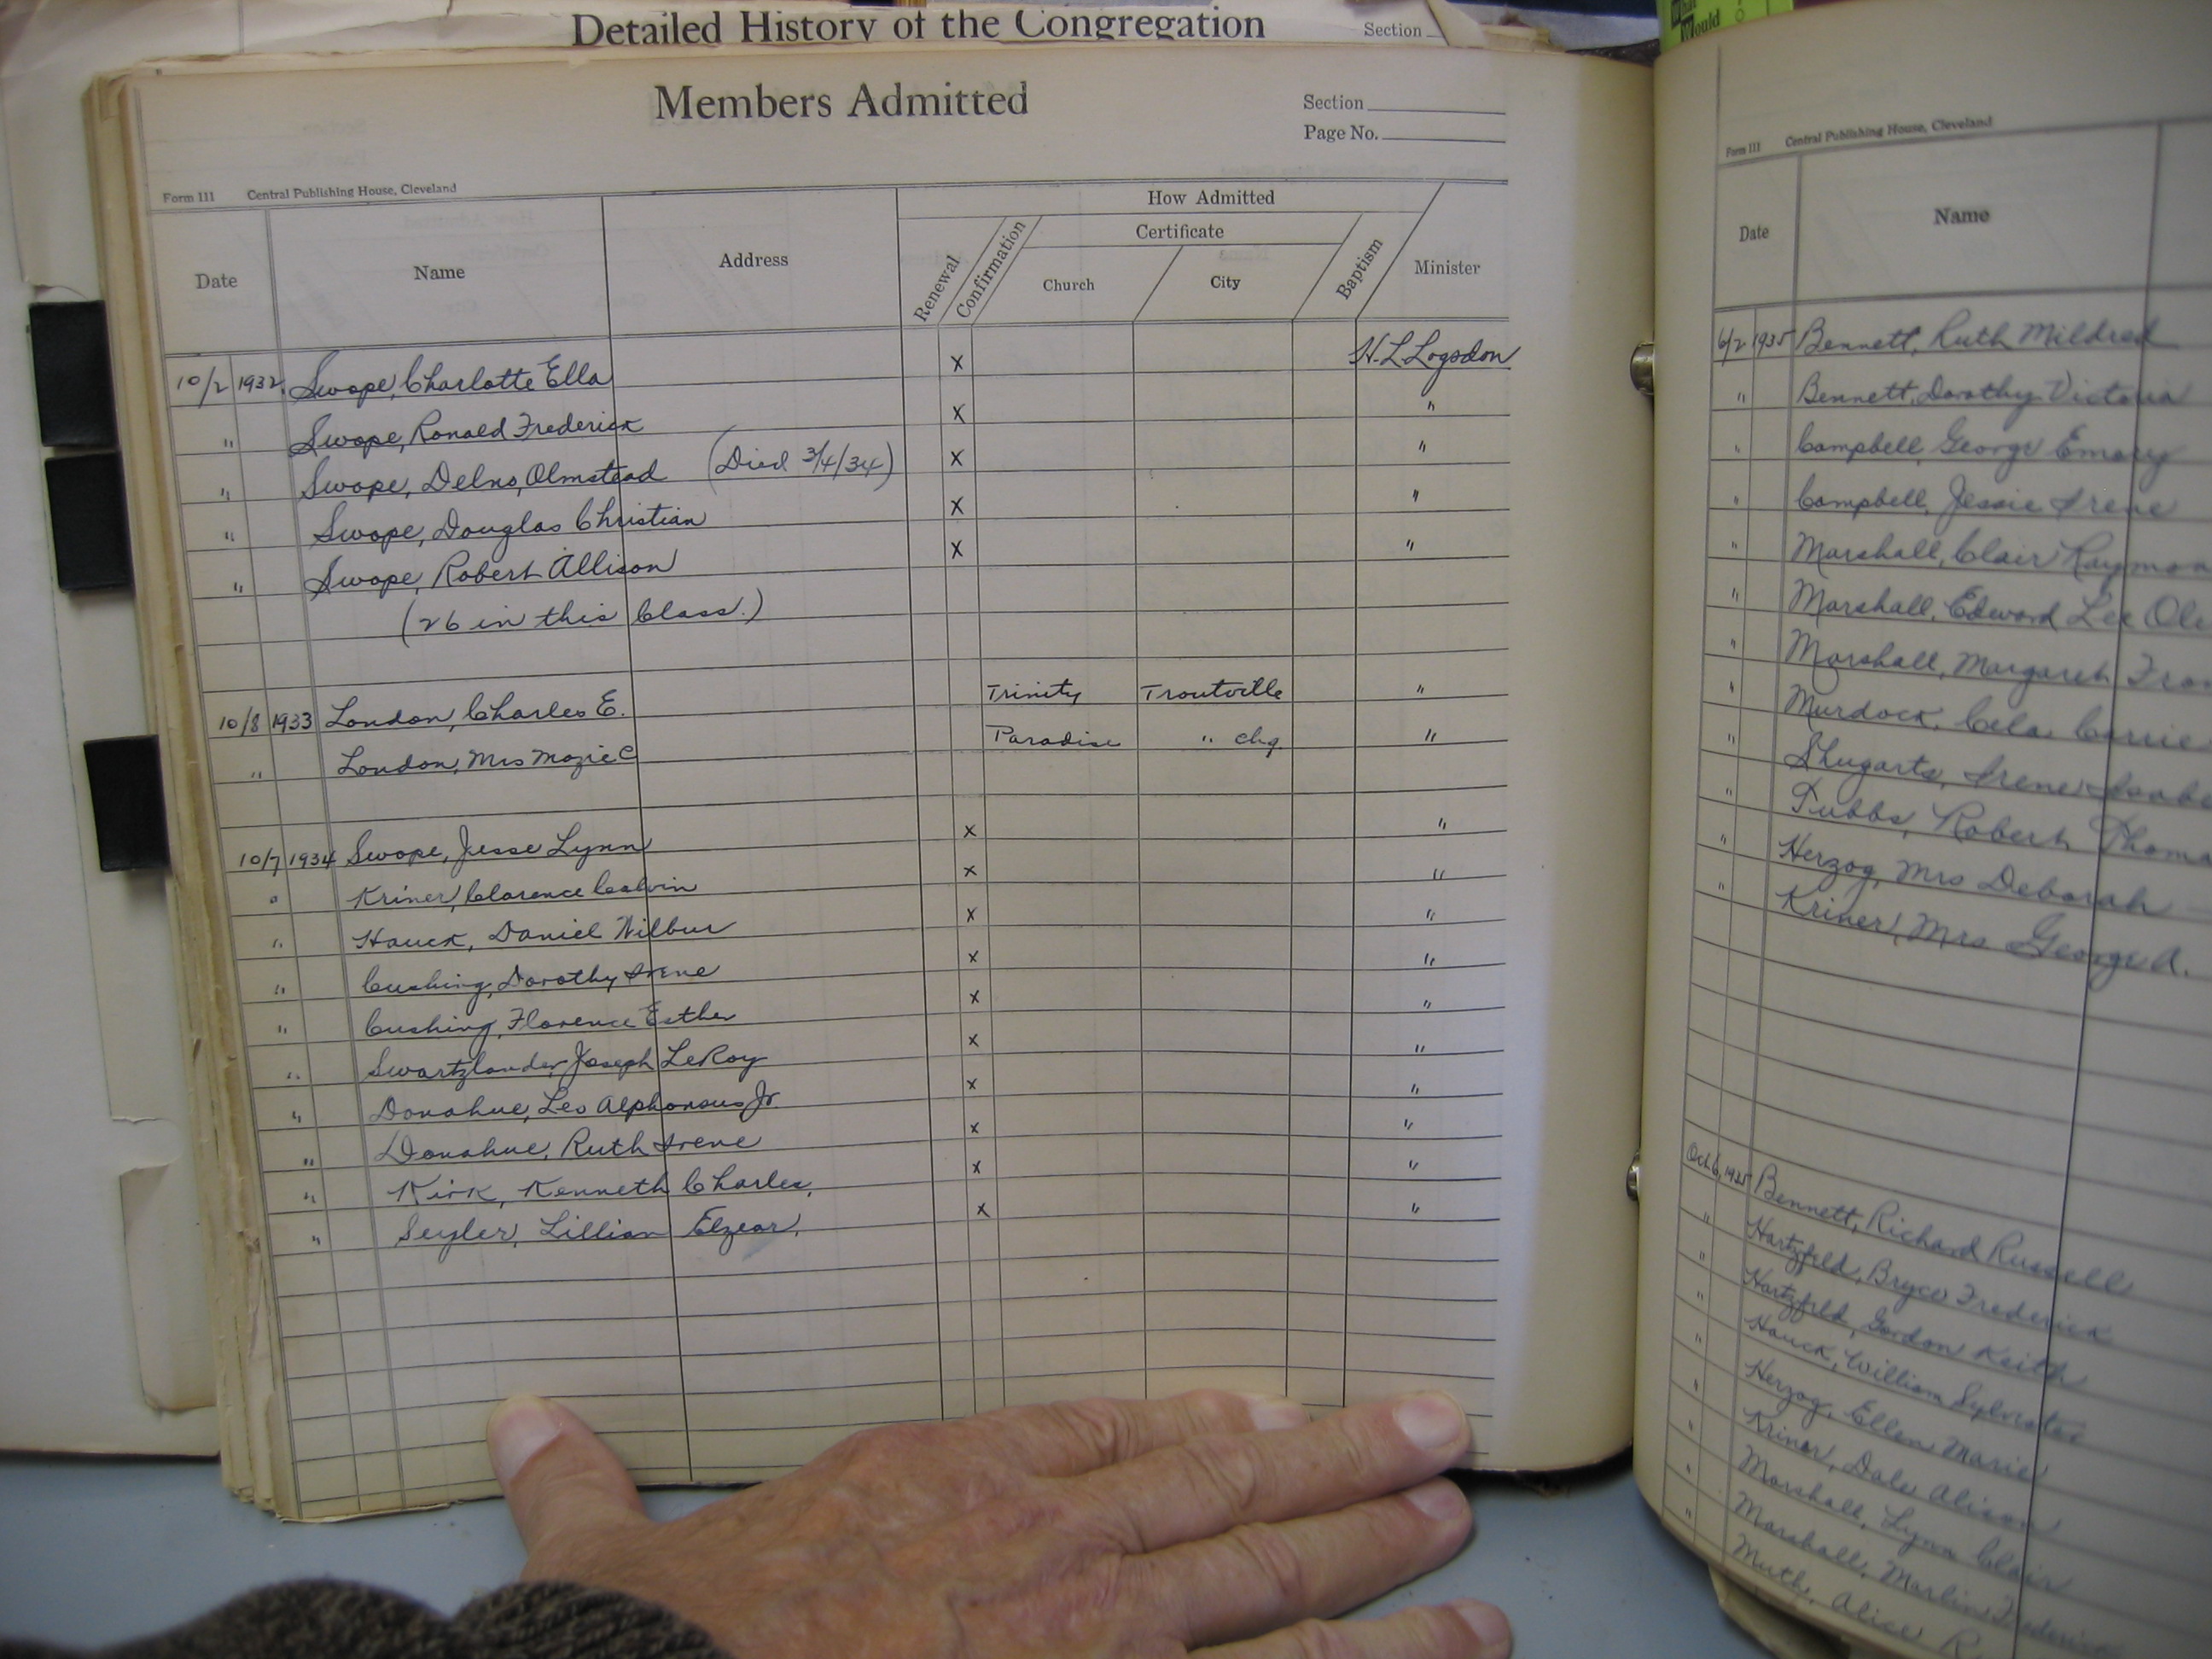 Detailed History of the Congregation Section
What
Would
Members Admitted
Section
Page No.
Form 111 Central Publishing House, Cleveland
Date Name Address Renewal Confirmation How Admitted Certificate Church City Baptism Minister
10/2 1932. Swope, Charlotte Ella x H. L Logsdon
" Swope, Ronald Frederick x "
" Swope, Delno, Olmstead (Died 3/4/34) x "
" Swope, Douglas Christian x "
" Swope, Robert Allison x "
(26 in this Class.)
10/8 1933 London, Charles E. Trinity Troutville "
" London, Mrs Mozie C Paradise " chg. "
10/7 1934 Swope, Jesse Lynn x "
" Kriner, Clarence Calvin x "
" Hauck, Daniel Wilbur x "
" Cushing, Dorothy Irene x "
" Cushing, Florence Esther x "
" Swartzlander, Joseph LeRoy x "
" Donahue, Leo Alphonsus Jr. x "
" Donahue, Ruth Irene x "
" Kirk, Kenneth Charles, x "
" Seyler, Lillian Elzear, x "
Form 111 Central Publishing House, Cleveland
Date Name
6/2 1935 Bennett, Ruth Mildred
" Bennett, Dorothy Victoria
" Campbell, George Emory
" Campbell, Jessie Irene
" Marshall, Clair Raymon
" Marshall, Edward Lee
" Marshall, Margaret Fran
" Murdock, Cela Carrie
" Shugarts, Irene
" Tubbs, Robert Thoma
" Herzog, Mrs Deborah
" Kriner, Mrs George A.
Oct 6, 1935 Bennett, Richard Russell
" Hartzfeld, Bryce Frederick
" Hartzfeld, Gordon Keith
" Hauck, William Sylvester
" Herzog, Ellen Marie
" Kriner, Dale Alison
" Marshall, Lynn Clair
" Marshall, Marlin Frederick
" Muth, Alice R